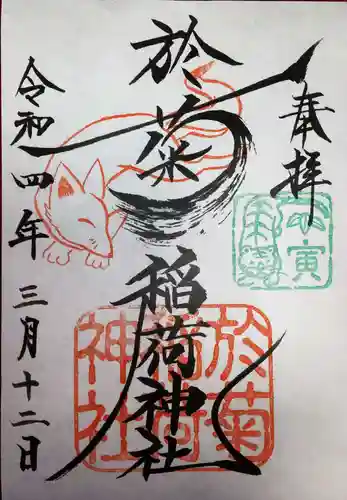 奉拝
於菊
稲荷神社
令和四年三月十二日
於菊
稲荷
神社
寅